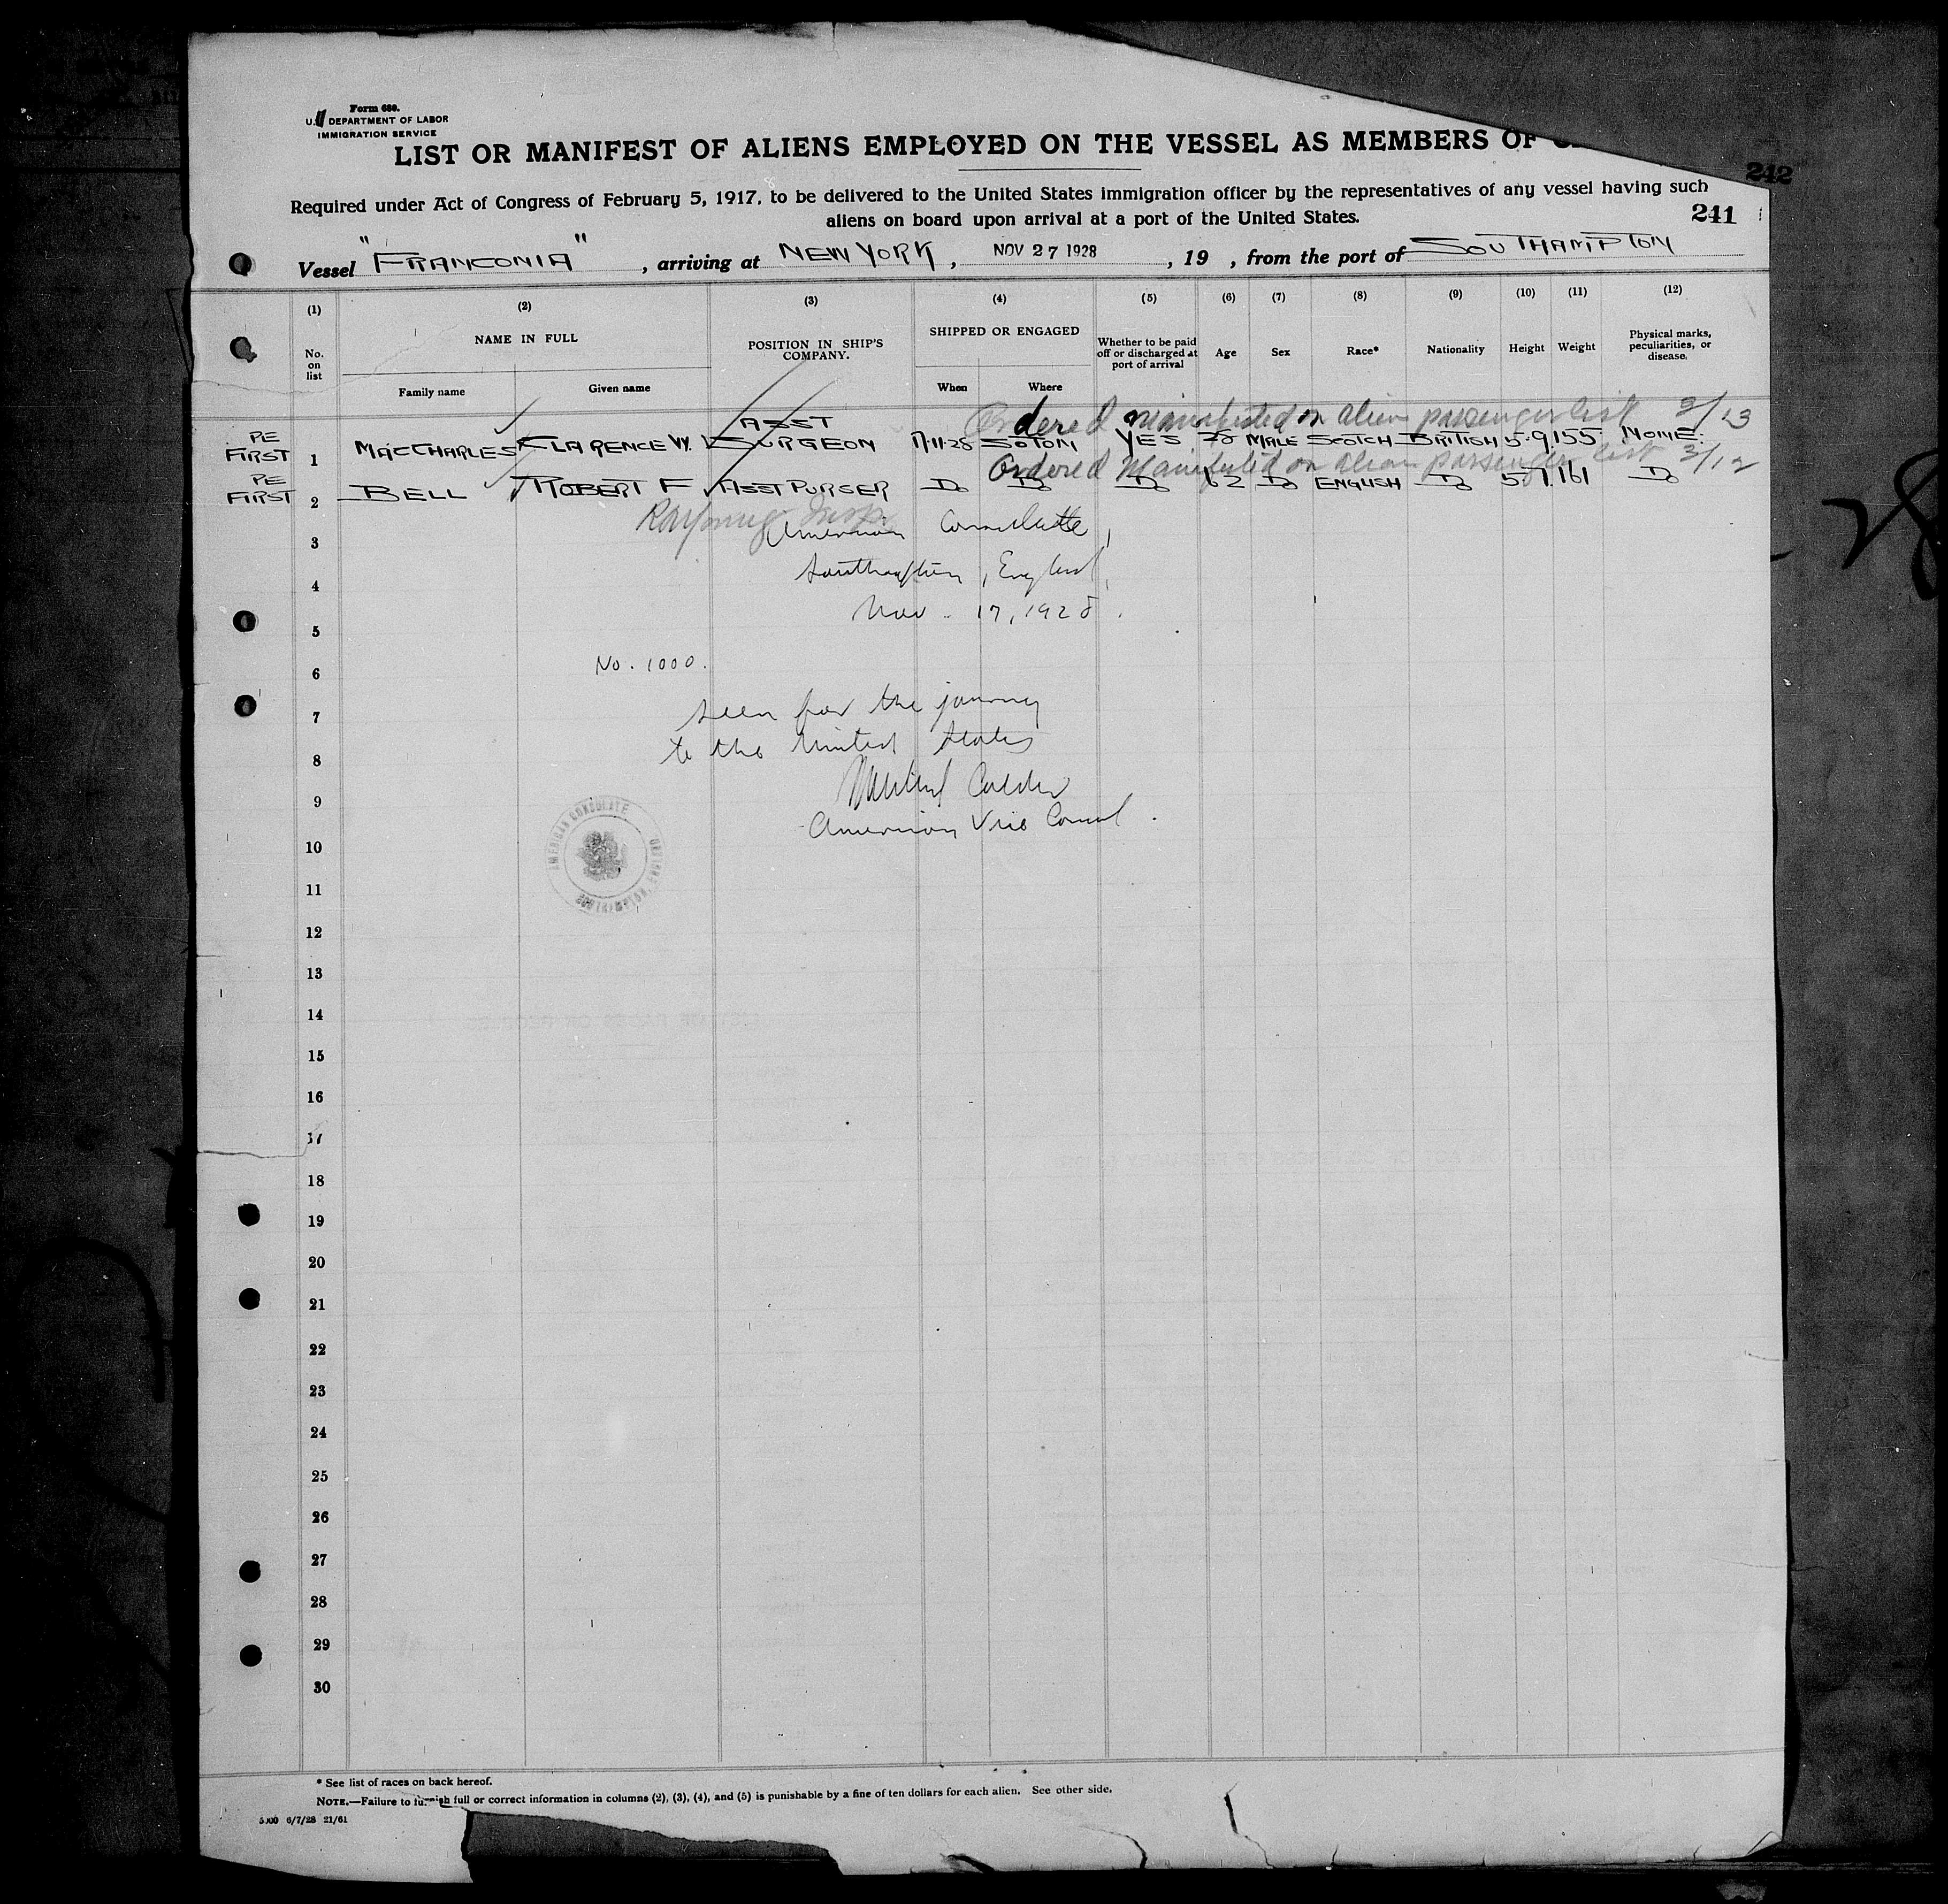 Form 680.
U. DEPARTMENT OF LABOR
IMMIGRATION SERVICE
LIST OR MANIFEST OF ALIENS EMPLOYED ON THE VESSEL AS MEMBERS OF
242
Required under Act of Congress of February 5, 1917, to be delivered to the United States immigration officer by the representatives of any vessel having such
aliens on board upon arrival at a port of the United States.
241
Vessel "FRANCONIA", arriving at NEW YORK, NOV 27 1928, 19 , from the port of SOUTHAMPTON
(1) (2) (3) (4) (5) (6) (7) (8) (9) (10) (11) (12)
No. on list
NAME IN FULL
Family name
Given name
POSITION IN SHIP'S COMPANY.
SHIPPED OR ENGAGED
When
Where
Whether to be paid off or discharged at port of arrival
Age
Sex
Race*
Nationality
Height
Weight
Physical marks, peculiarities, or disease.
Ordered manifested on alien passenger list 3/13
PE FIRST 1 MACCHARLES CLARENCE W. ASST SURGEON 17-11-28 SOTON YES MALE SCOTCH BRITISH 5-9 155 NONE.
Ordered Manifested on alien passenger list 3/12
PE FIRST 2 BELL ROBERT F ASST PURSER Do Do Do 62 Do ENGLISH Do 5-7 161 Do
Insp.
3
American Consulate,
4
Southampton, England,
5
Nov. 17, 1928.
6
No. 1000.
7
Seen for the journey
8
to the United States
9
Calder
American Vice Consul.
10
AMERICAN CONSULATE
SOUTHAMPTON, ENGLAND
11
12
13
14
15
16
17
18
19
20
21
22
23
24
25
26
27
28
29
30
* See list of races on back hereof.
NOTE.—Failure to furnish full or correct information in columns (2), (3), (4), and (5) is punishable by a fine of ten dollars for each alien. See other side.
5000 6/7/28 21/61